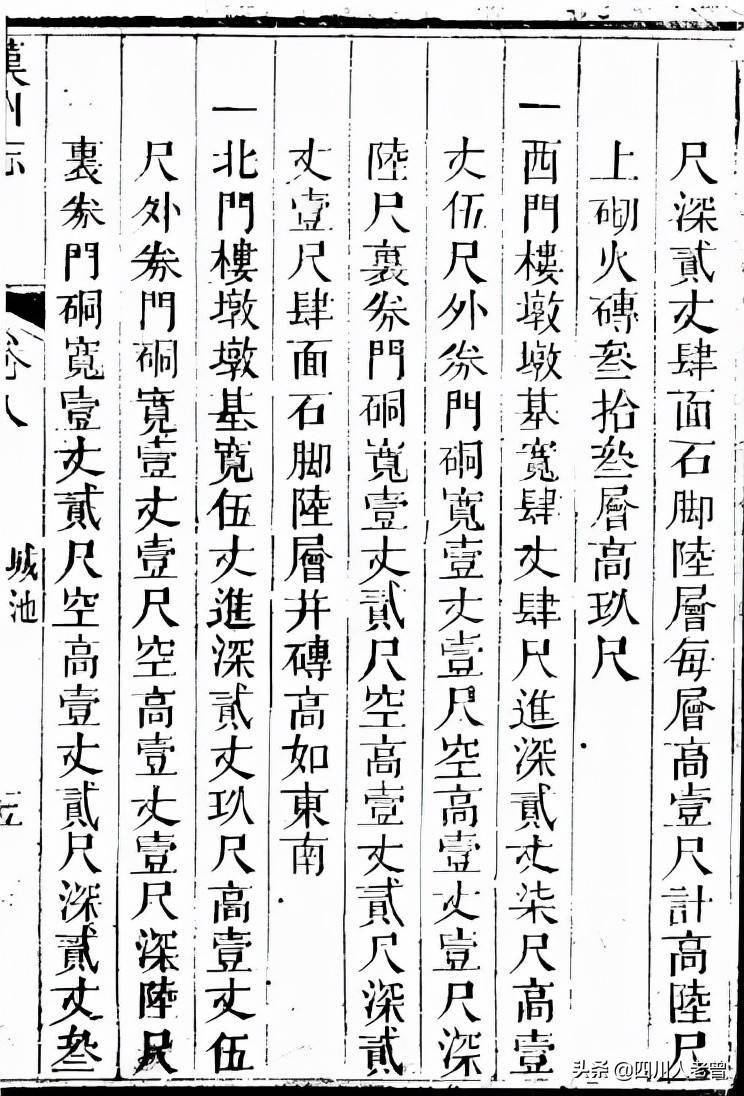 尺深貳丈肆面石脚陸層每層高壹尺計高陸尺
上砌火磚叁拾叁層高玖尺
一西門樓墩墩基寬肆丈肆尺進深貳丈柒尺高壹
丈伍尺外券門硐寬壹丈壹尺空高壹丈壹尺深
陸尺裏券門硐寬壹丈貳尺空高壹丈貳尺深貳
丈壹尺肆面石脚陸層并磚高如東南
一北門樓墩墩基寬伍丈進深貳丈玖尺高壹丈伍
尺外券門硐寬壹丈壹尺空高壹丈壹尺深陸尺
裏券門硐寬壹丈貳尺空高壹丈貳尺深貳丈叁
漢州志 卷八 城池
头条 @四川人老曾